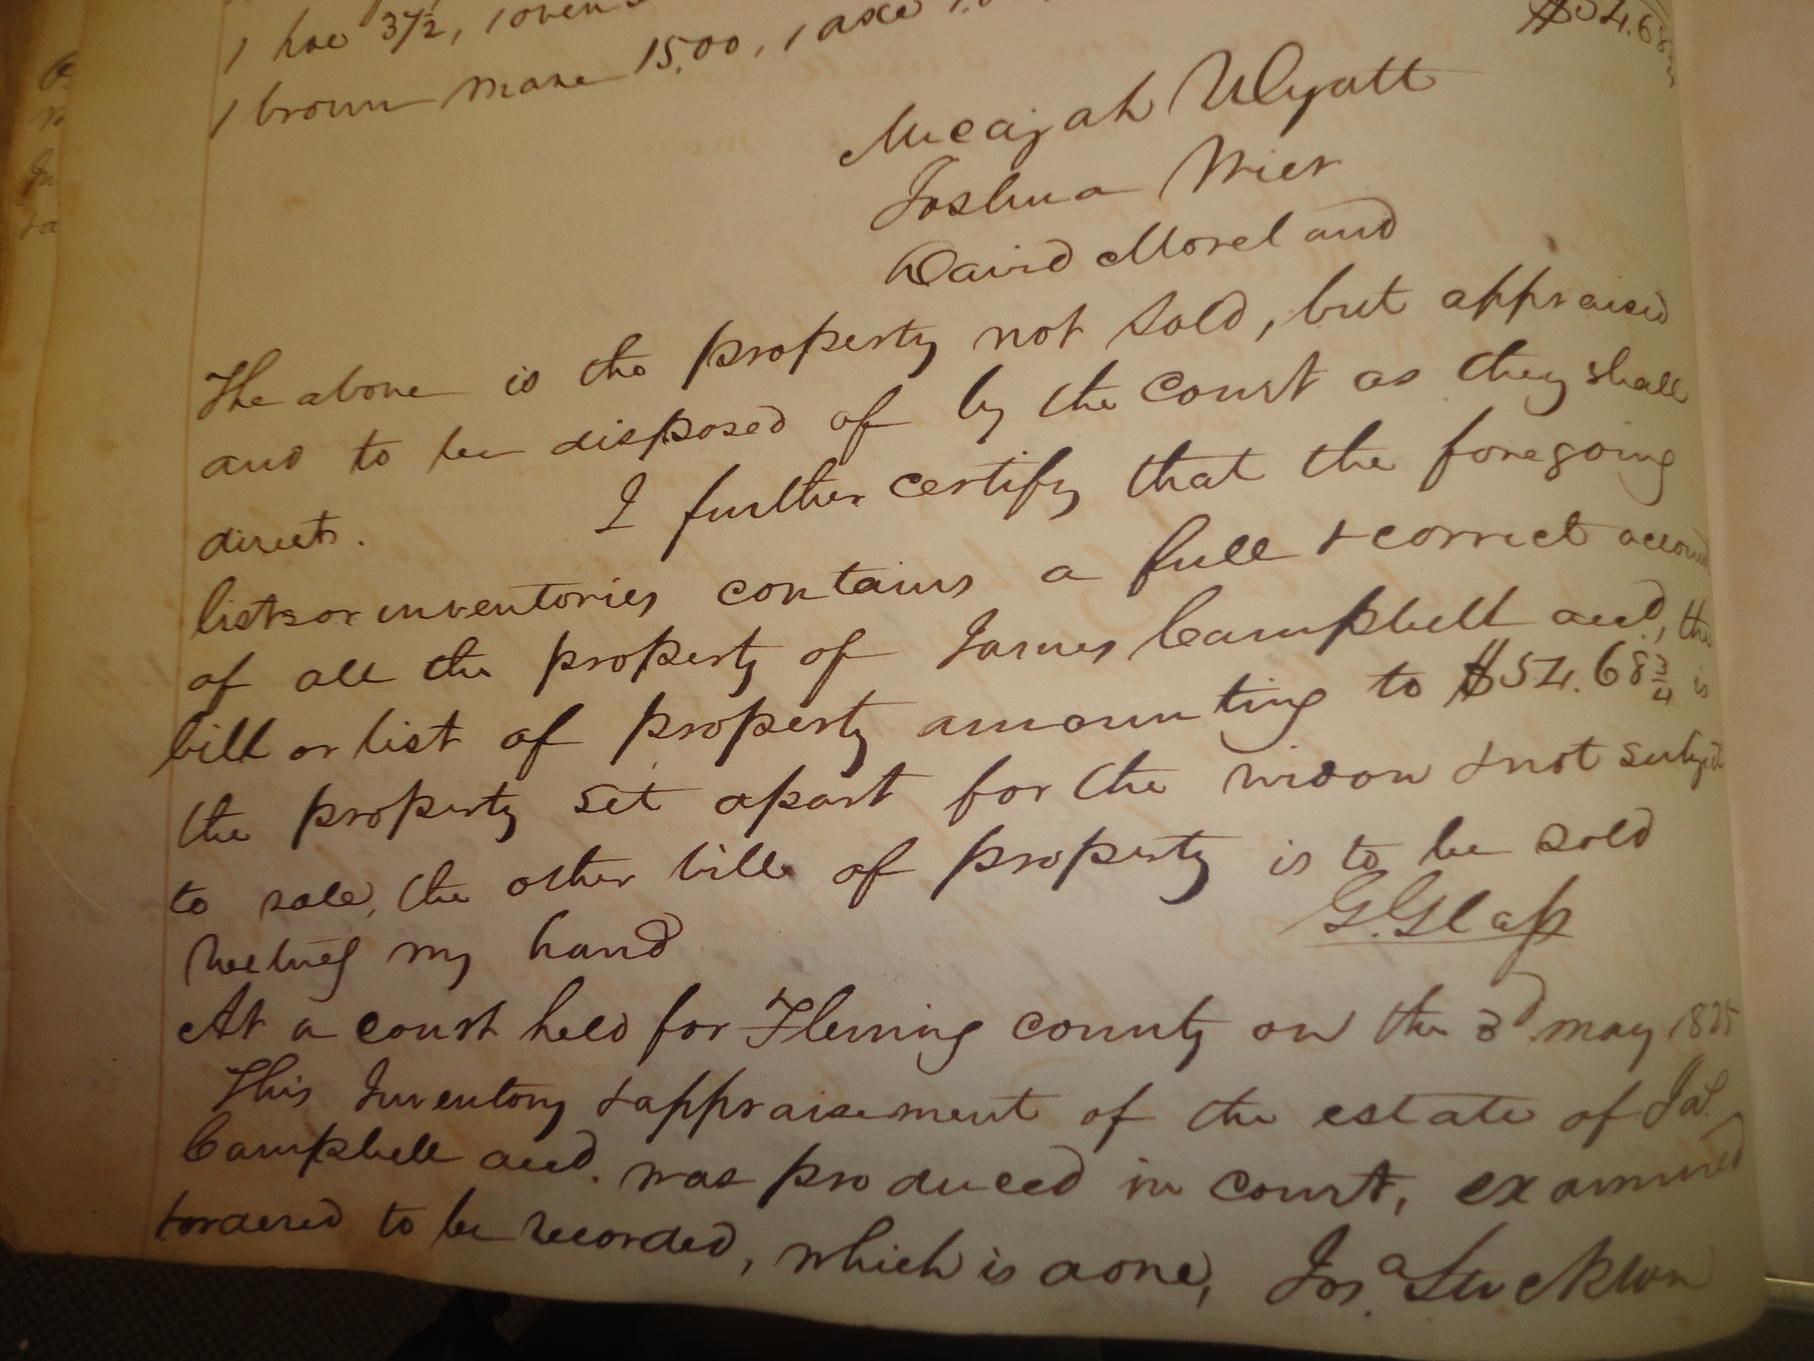 1 hoe 37½, 1 oven
$54.68¾
1 brown mare 15.00, 1 axe
Micajah Wyatt
Joshua Wier
David Moreland
The above is the property not sold, but appraised
and to be disposed of by the court as they shall
direct.
I further certify that the foregoing
lists or inventories contains a full & correct account
of all the property of James Campbell decd, the
bill or list of property amounting to $54.68¾ is
the property set apart for the widow & not subject
to sale, the other bill of property is to be sold
Witness my hand
G. Glass
At a court held for Fleming county on the 3d may 1825
This Inventory & appraisement of the estate of Jas.
Campbell decd. was produced in court, examined
& ordered to be recorded, which is done,
Jos.a Stockton